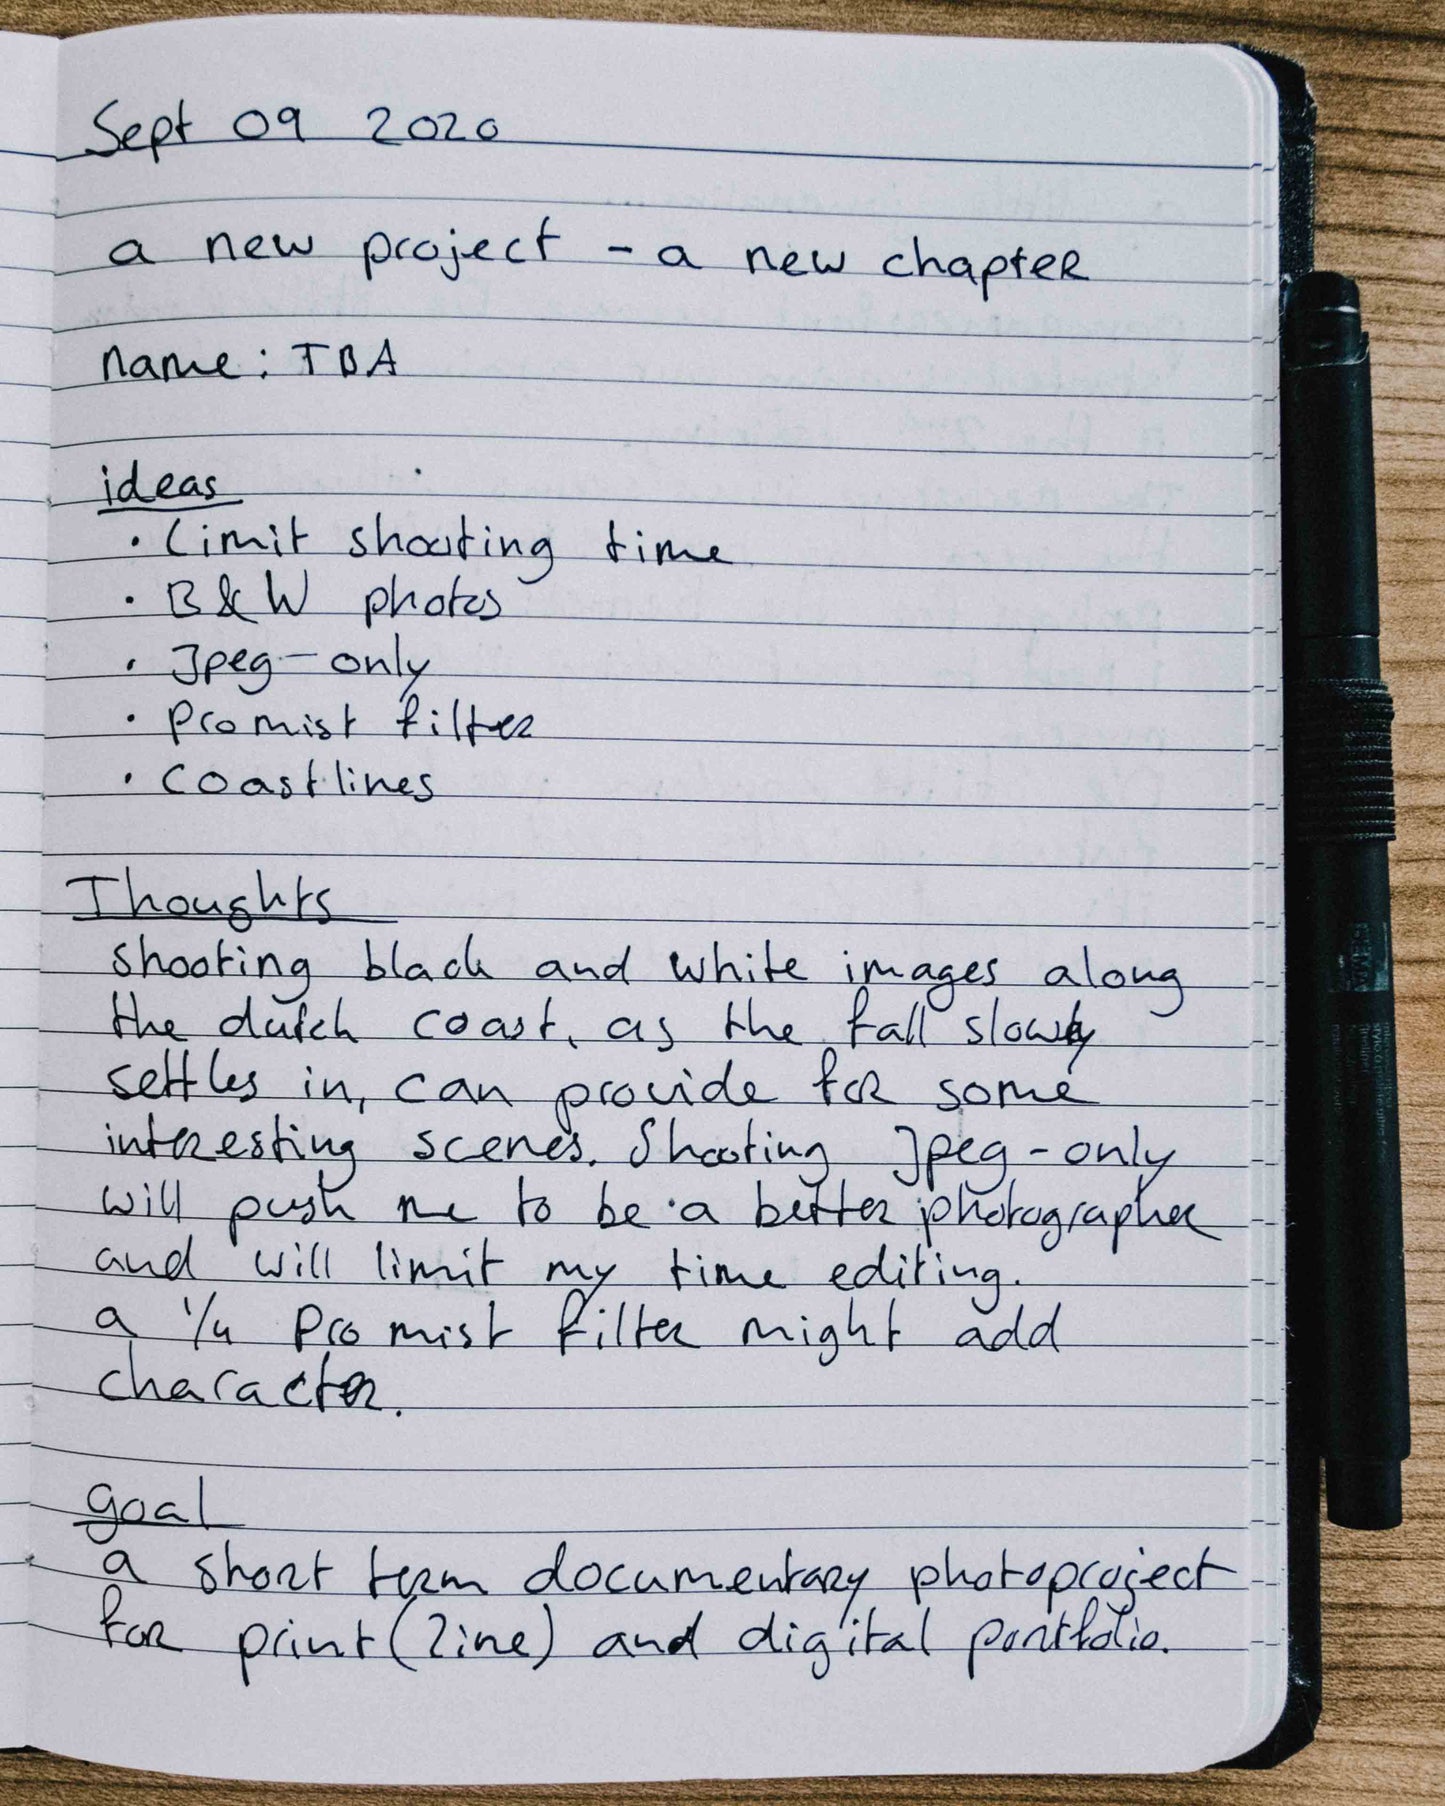 Sept 09 2020
a new project - a new chapter
name: TBA
ideas
· Limit shooting time
· B&W photos
· Jpeg-only
· Promist filter
· coastlines
Thoughts
shooting black and white images along
the dutch coast, as the fall slowly
settles in, can provide for some
interesting scenes. Shooting Jpeg-only
will push me to be a better photographer
and will limit my time editing.
a 1/4 Pro mist filter might add
character.
goal
a short term documentary photoproject
for print (zine) and digital portfolio.